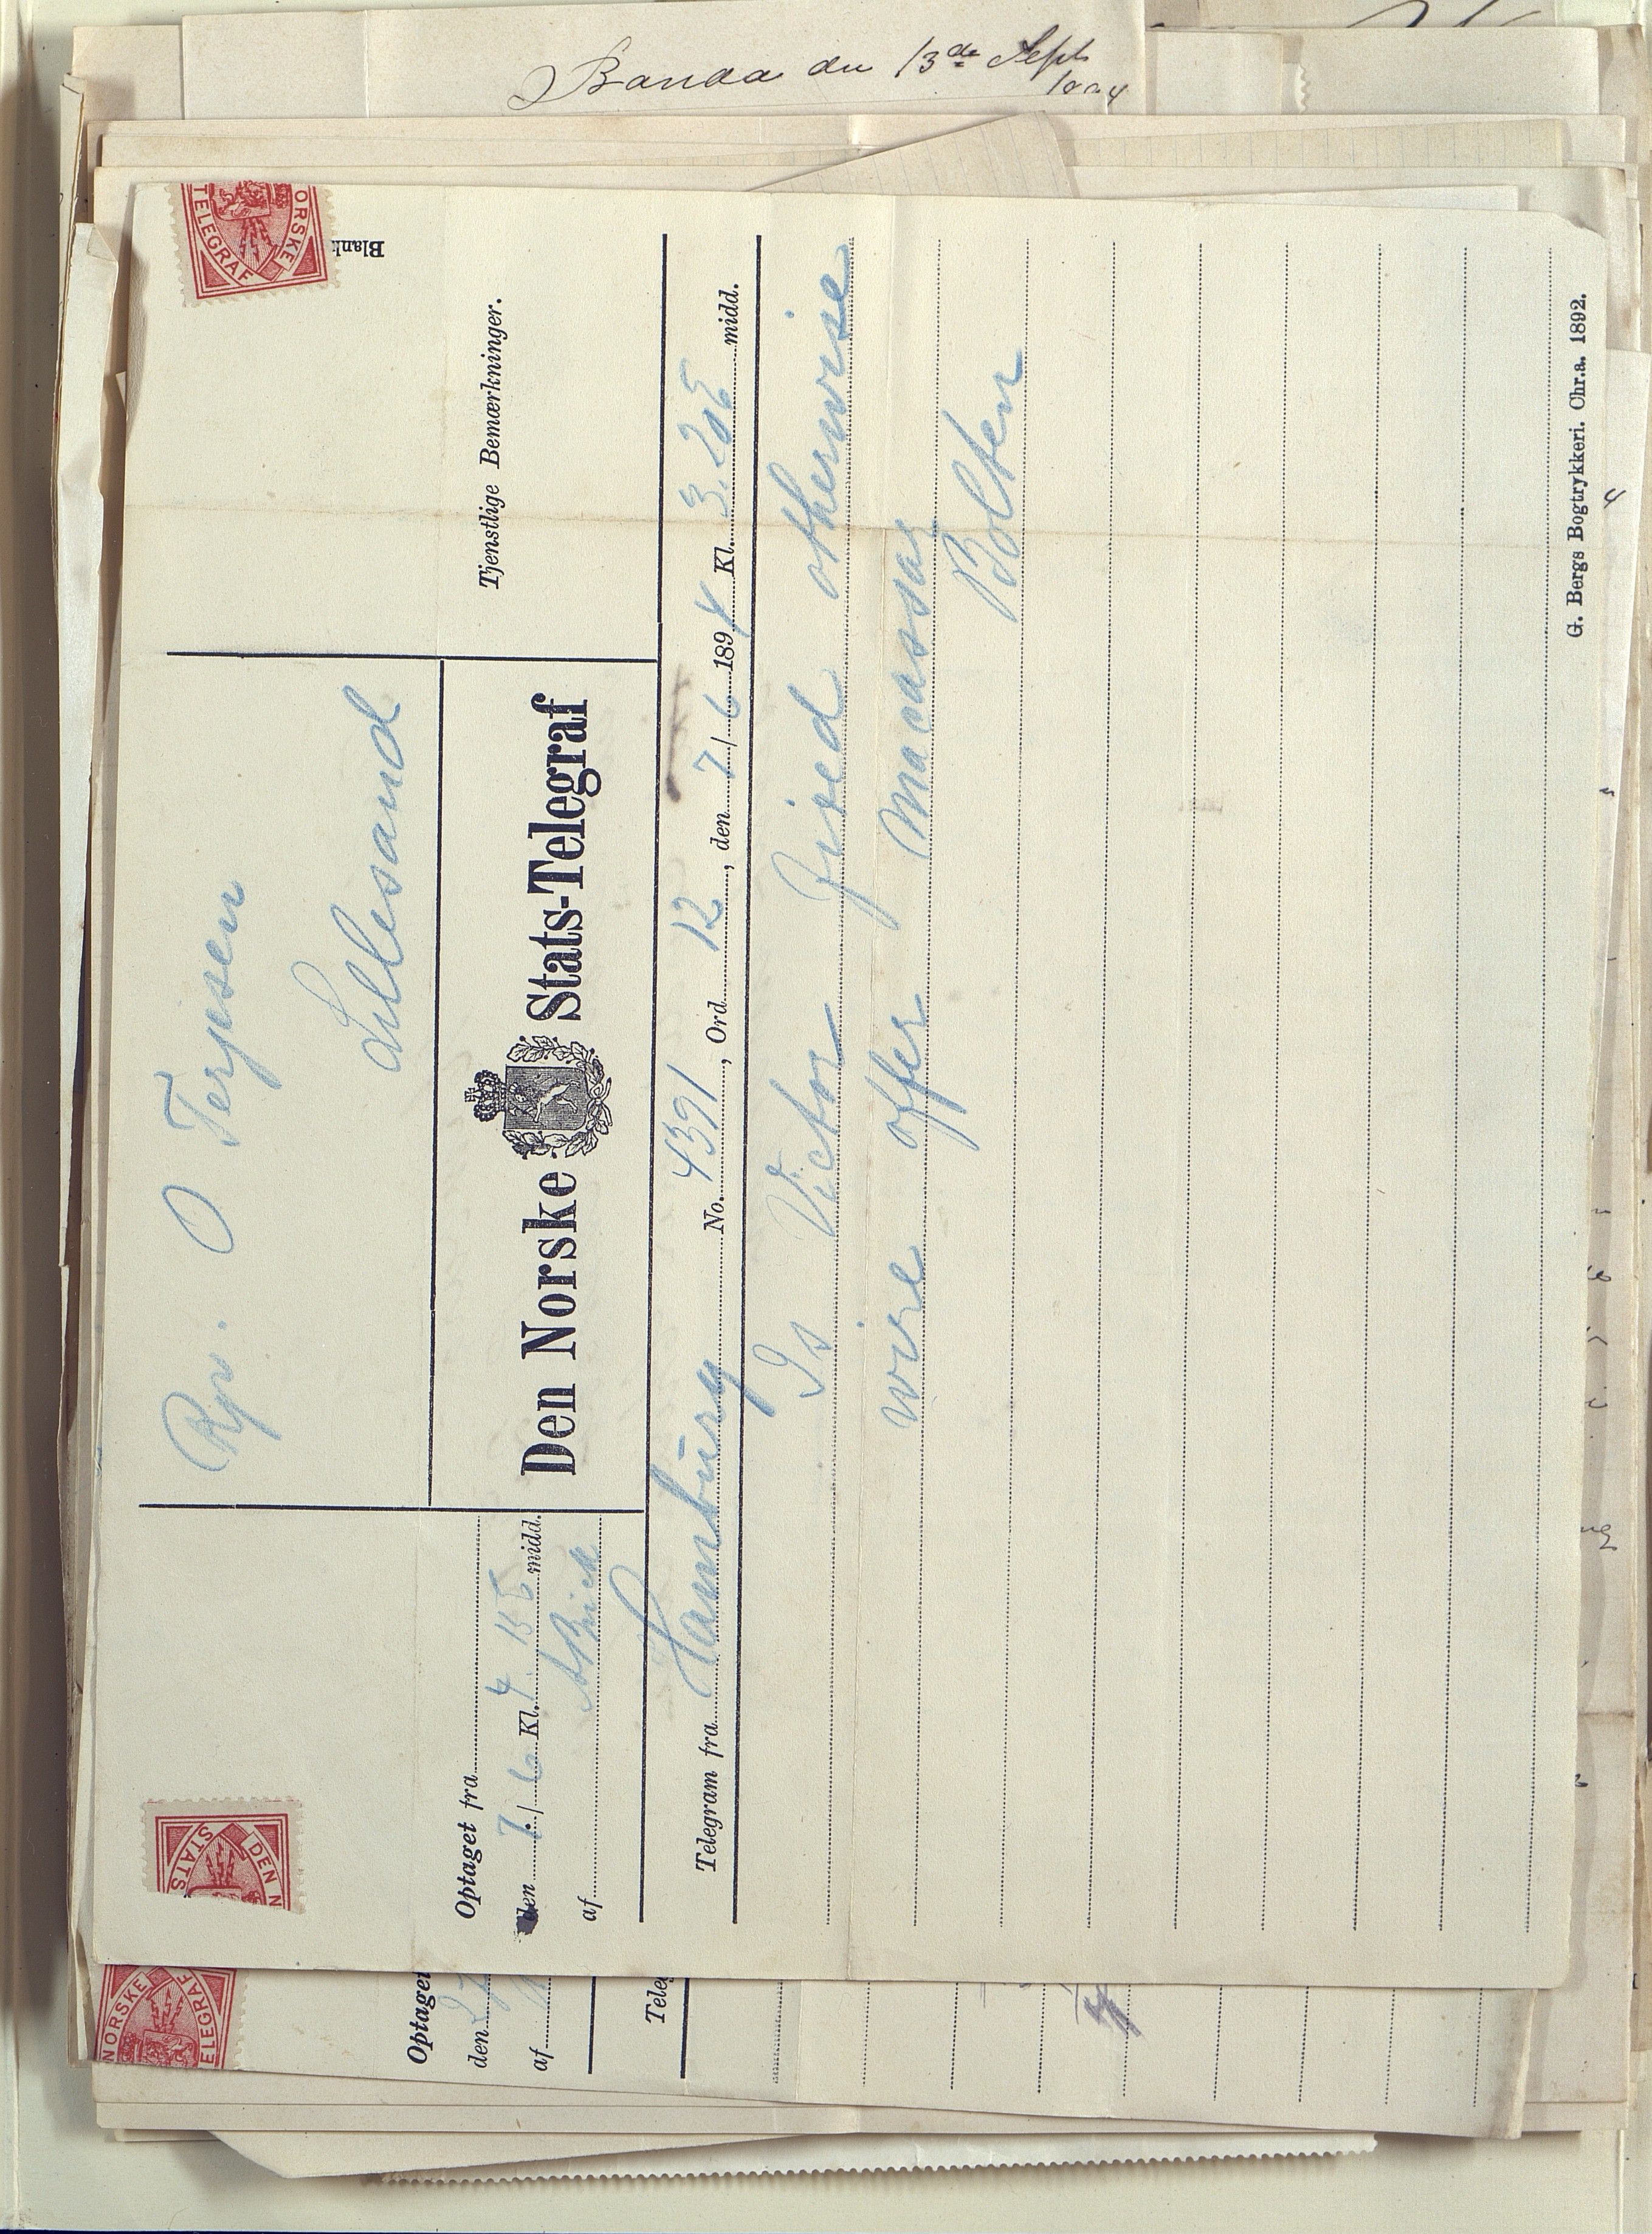 Banda den 13de Sept
ORSKE
TELEGRAF
Blank
Rp. O Terjesen
Lillesand
Tjenstlige Bemærkninger.
Optaget fra
den 7/6 Kl. 4 15 midd.
af
Den Norske Stats-Telegraf
Telegram fra Hamburg No. 4391, Ord 12, den 7/6 1894 Kl. 3.20 midd.
Is Victor fixed otherwise
wire offer Macassar
Bolten
G. Bergs Bogtrykkeri. Chr.a. 1892.
STATS
DEN N
NORSKE
ELEGRAF
Optaget
den
af
Teleg